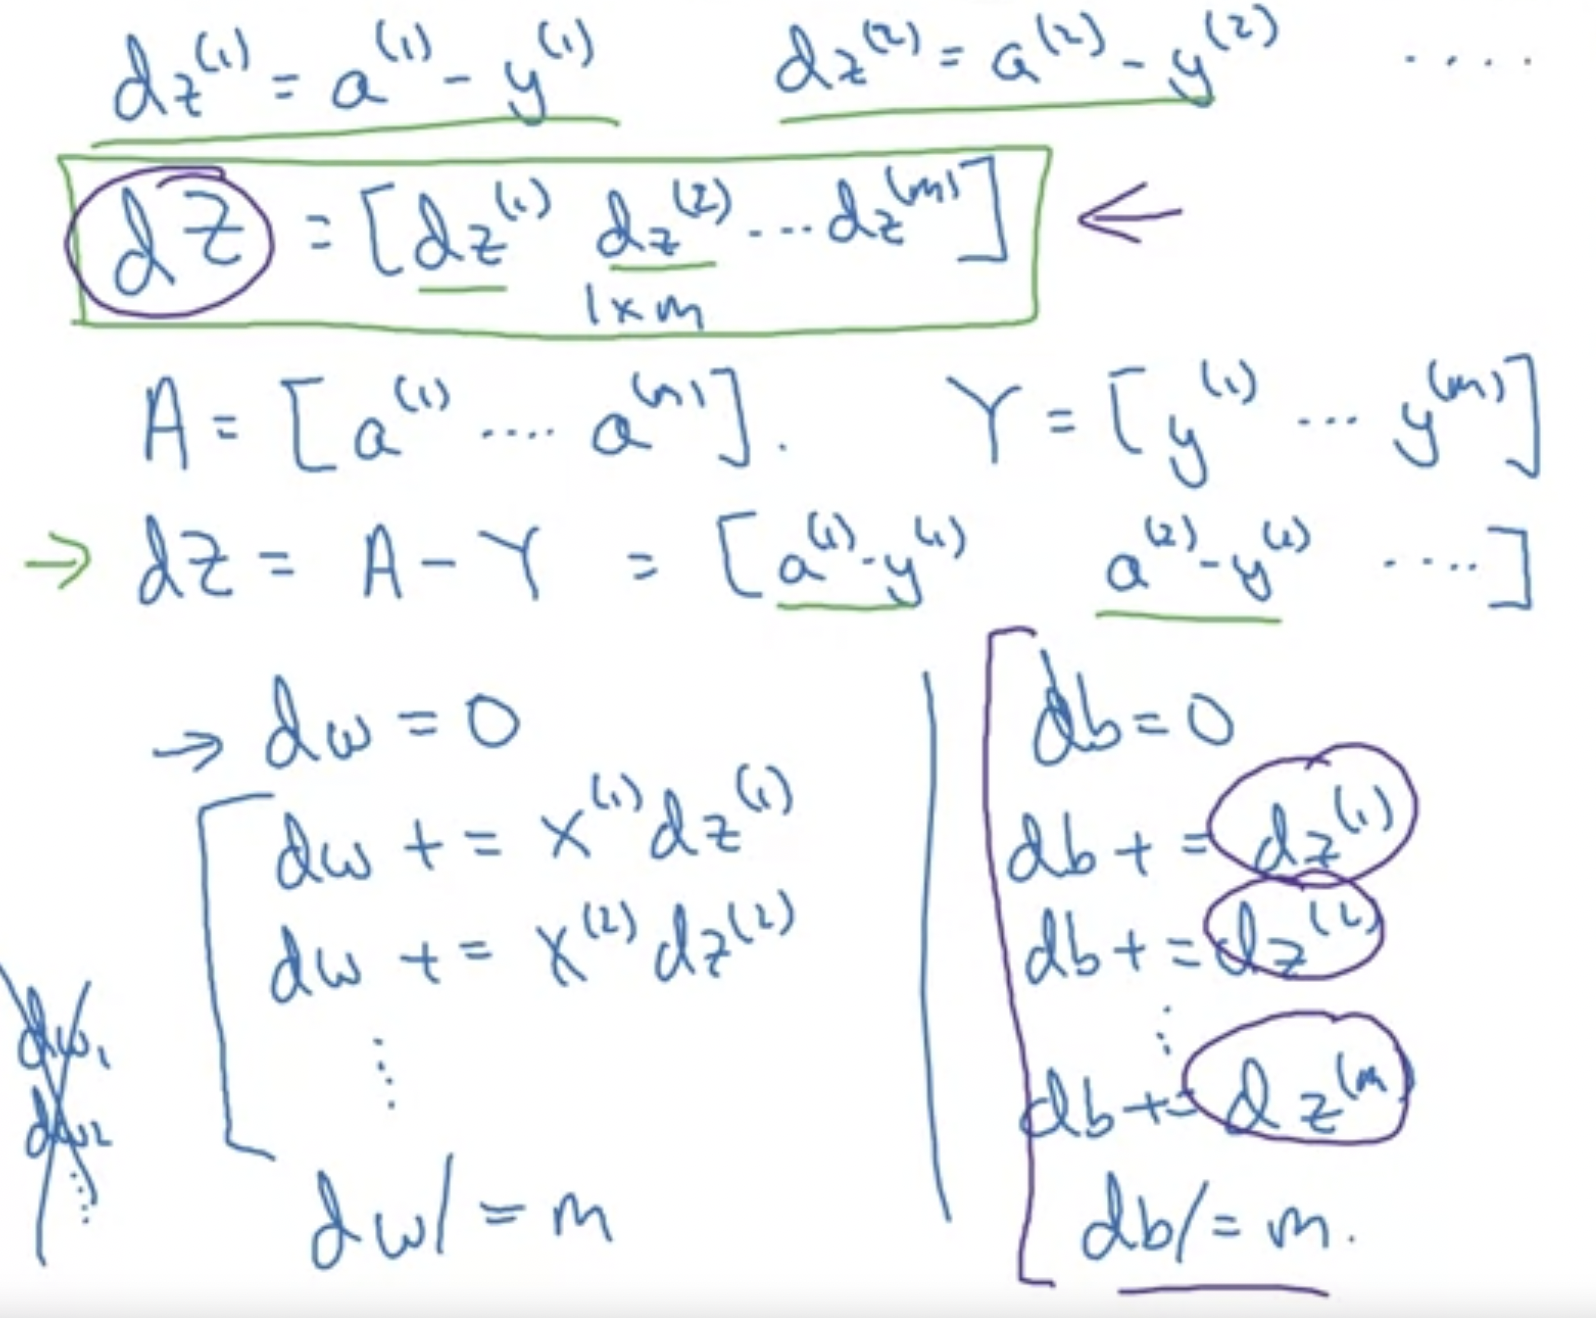 dz⁽¹⁾ = a⁽¹⁾ - y⁽¹⁾ dz⁽²⁾ = a⁽²⁾ - y⁽²⁾ ....
dZ = [dz⁽¹⁾ dz⁽²⁾ ... dz⁽ᵐ⁾] ←
1×m
A = [a⁽¹⁾ .... a⁽ᵐ⁾]. Y = [y⁽¹⁾ ... y⁽ᵐ⁾]
→ dZ = A - Y = [a⁽¹⁾-y⁽¹⁾ a⁽²⁾-y⁽²⁾ ....]
→ dw = 0
dw += x⁽¹⁾dz⁽¹⁾
dw += x⁽²⁾dz⁽²⁾
⋮
dw/=m
dw₁
dw₂
⋮
db=0
db+=dz⁽¹⁾
db+=dz⁽²⁾
⋮
db+=dz⁽ᵐ⁾
db/=m.